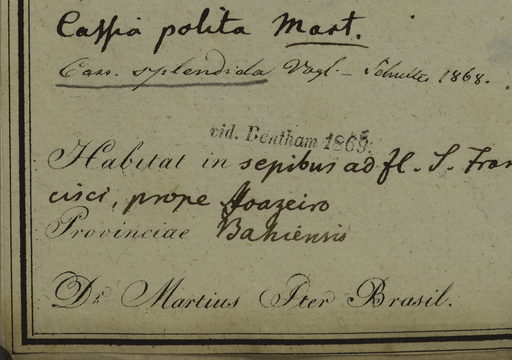 Cassia polita Mart.
Cass. splendida Vogl. — Schultes 1868.
vid. Bentham 1869.
Habitat in sepibus ad fl. S. Fran
cisci, prope Joazeiro
Provinciae Bahiensis
Dr Martius Iter Brasil.